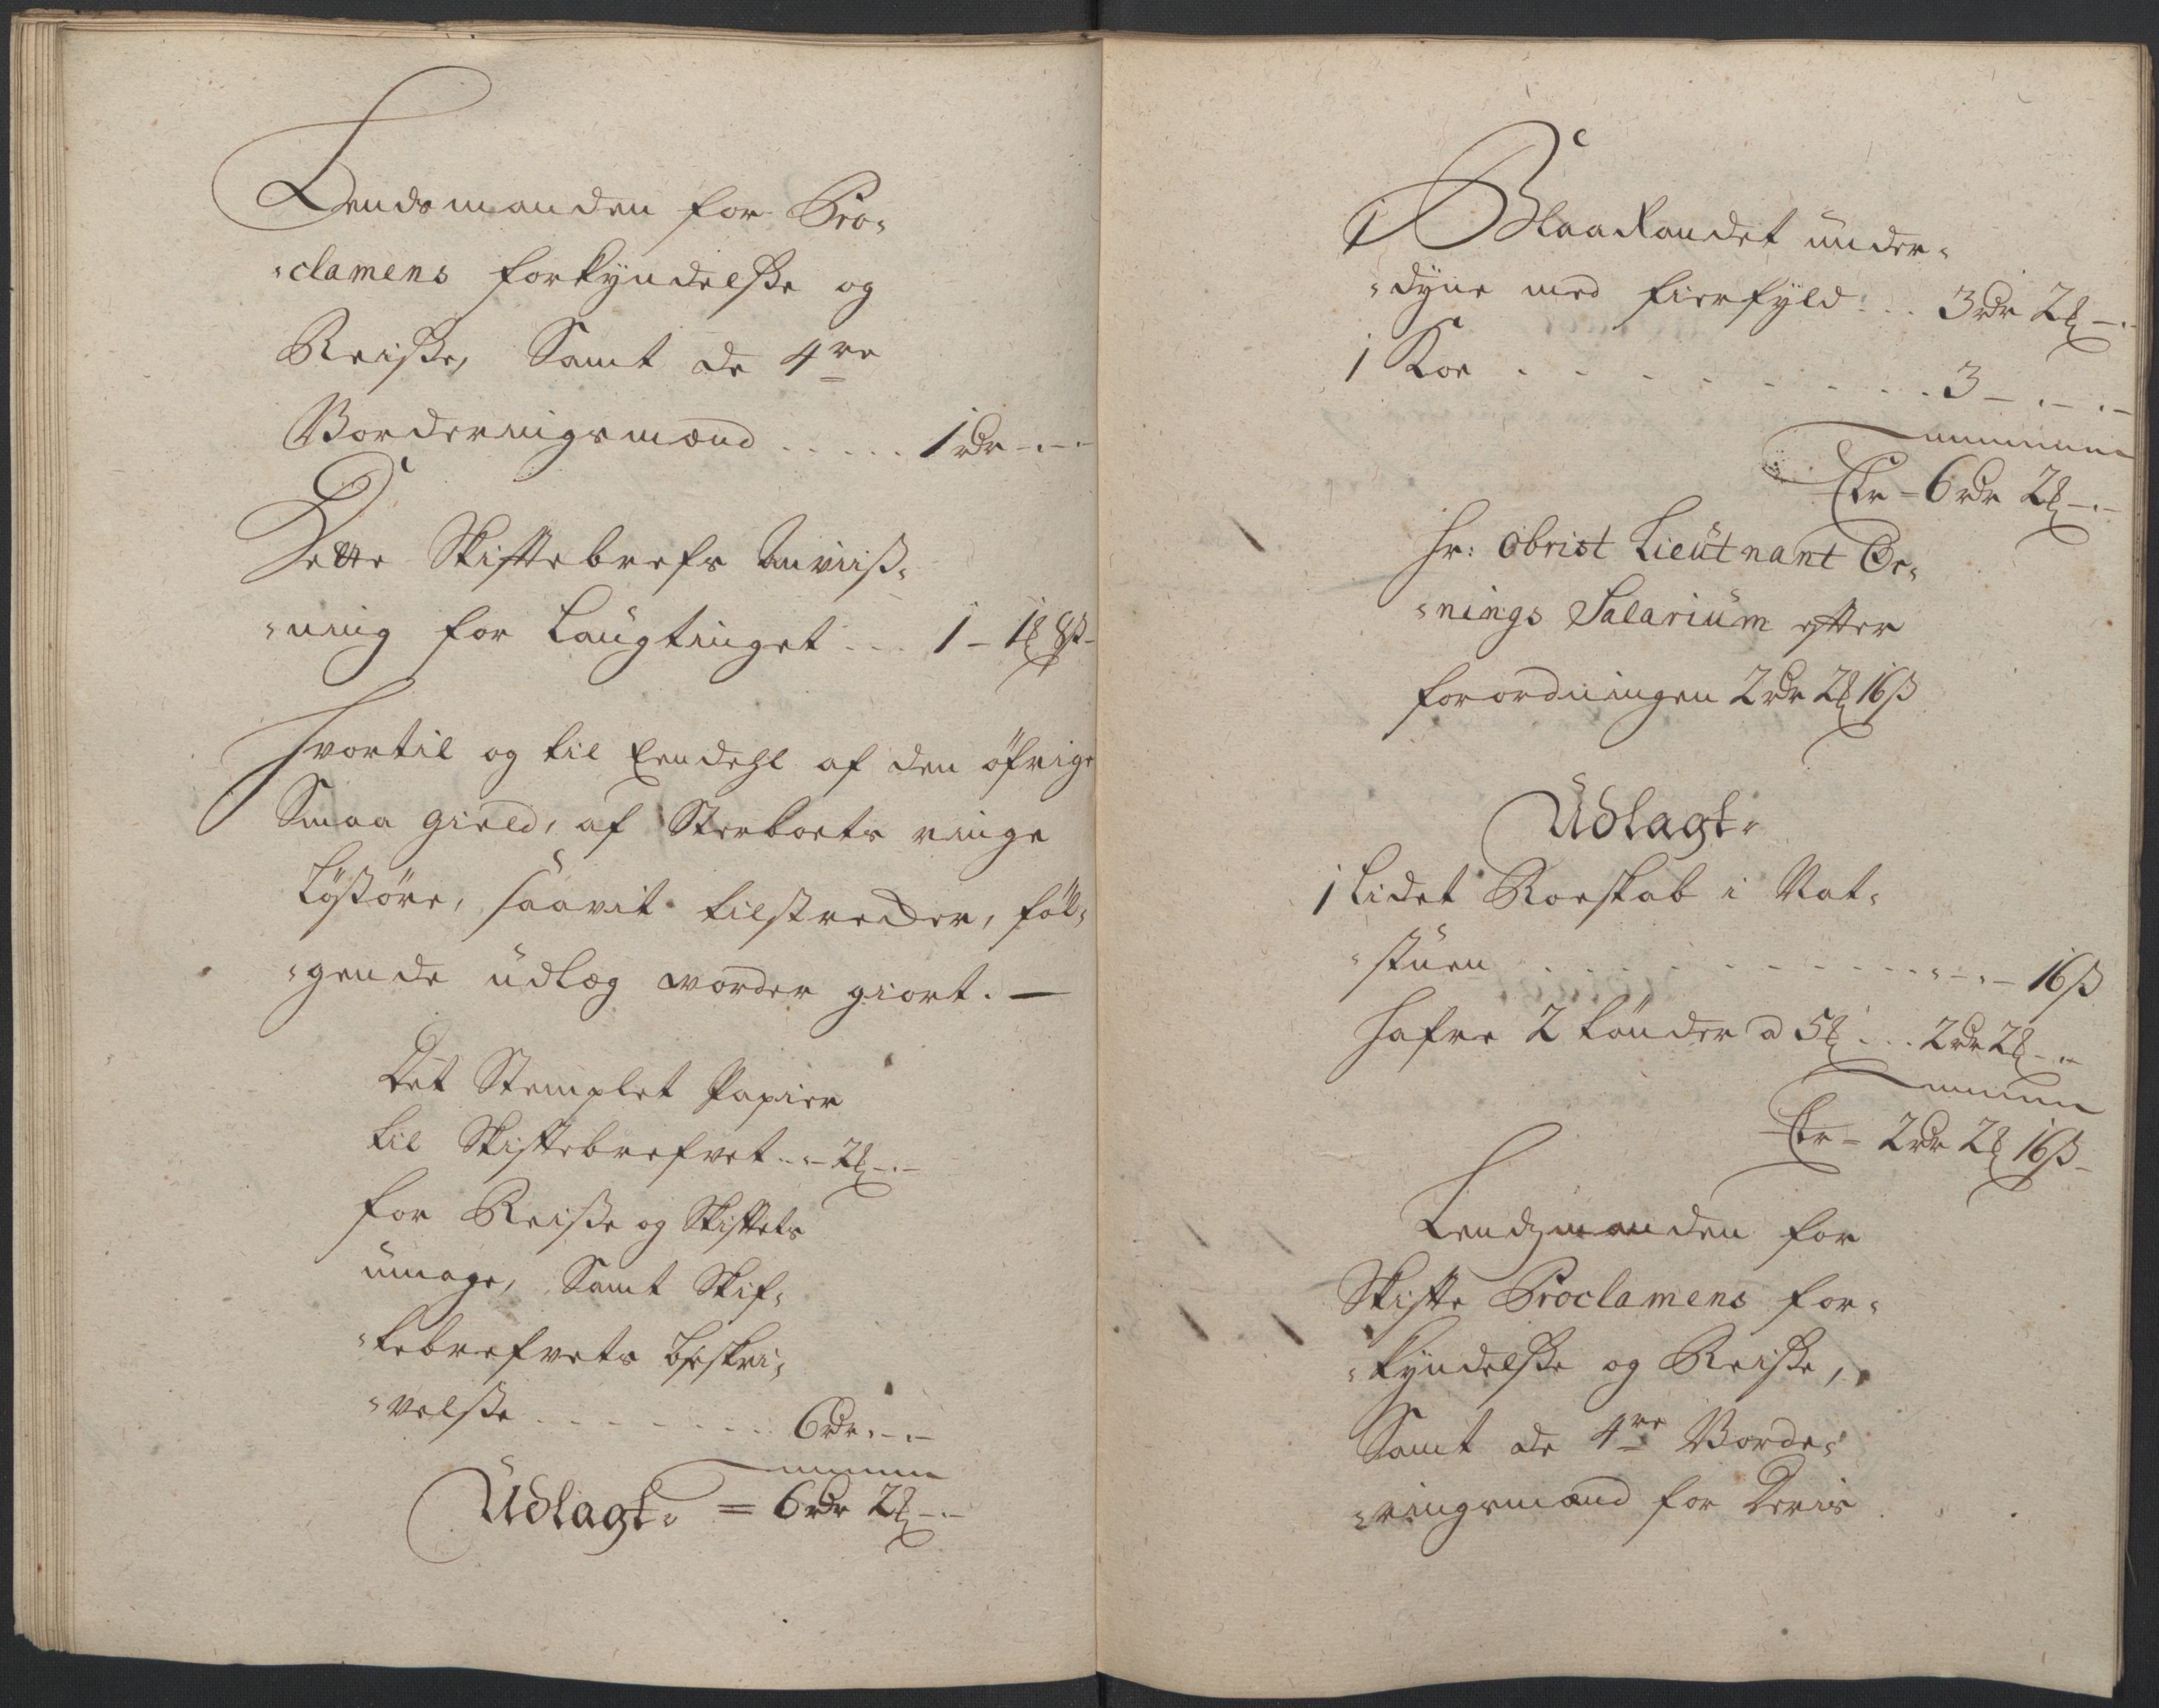 Lendsmanden for Pro-
-clamens forkyndelße og
Reiße, Samt de 4re
Vorderingsmænd ..... 1 rdr -.-
Dette Skiftebrefs Anviiß-
-ning for Laugtinget ... 1 - 1 ℔ 8 ß -
Hvortil og til Eendehl af den öfrige
Smaa gield, af Sterboets ringe
Löstöre, saavit tilstrecker, föl-
-gende üdlæg worder giort. —
Det Stemplet Papier
til Skiftebrefvet .. - 2 ℔ -.-
for Reiße og Skiftets
ümage, Samt Skif-
-tebrefvets beskri-
-velße ........ 6 rdr -.-
Üdlagt. = 6 rdr 2 ℔ -.-
1 Blaarandet ünder-
-dyne med fierfyld ... 3 rdr 2 ℔ -.-
1 Koe . . . . . . . . . 3 - . - . -
Er - 6 rdr 2 ℔ -.-
Hr: Obrist Lieütnant
-nings Salariüm efter
forordningen 2 rdr 2 ℔ 16 ß
Üdlagt.
1 Lidet Roeskab i Nat-
-stüen . . . . . . . . . - . - 16 ß
Hafre 2 tönder a 5 ℔ ... 2 rdr 2 ℔ -.-
Er - 2 rdr 2 ℔ 16 ß -
Lendzmanden for
Skifte Proclamens for-
-kyndelße og Reiße,
Samt de 4re Vorde-
-ringsmænd for Deris